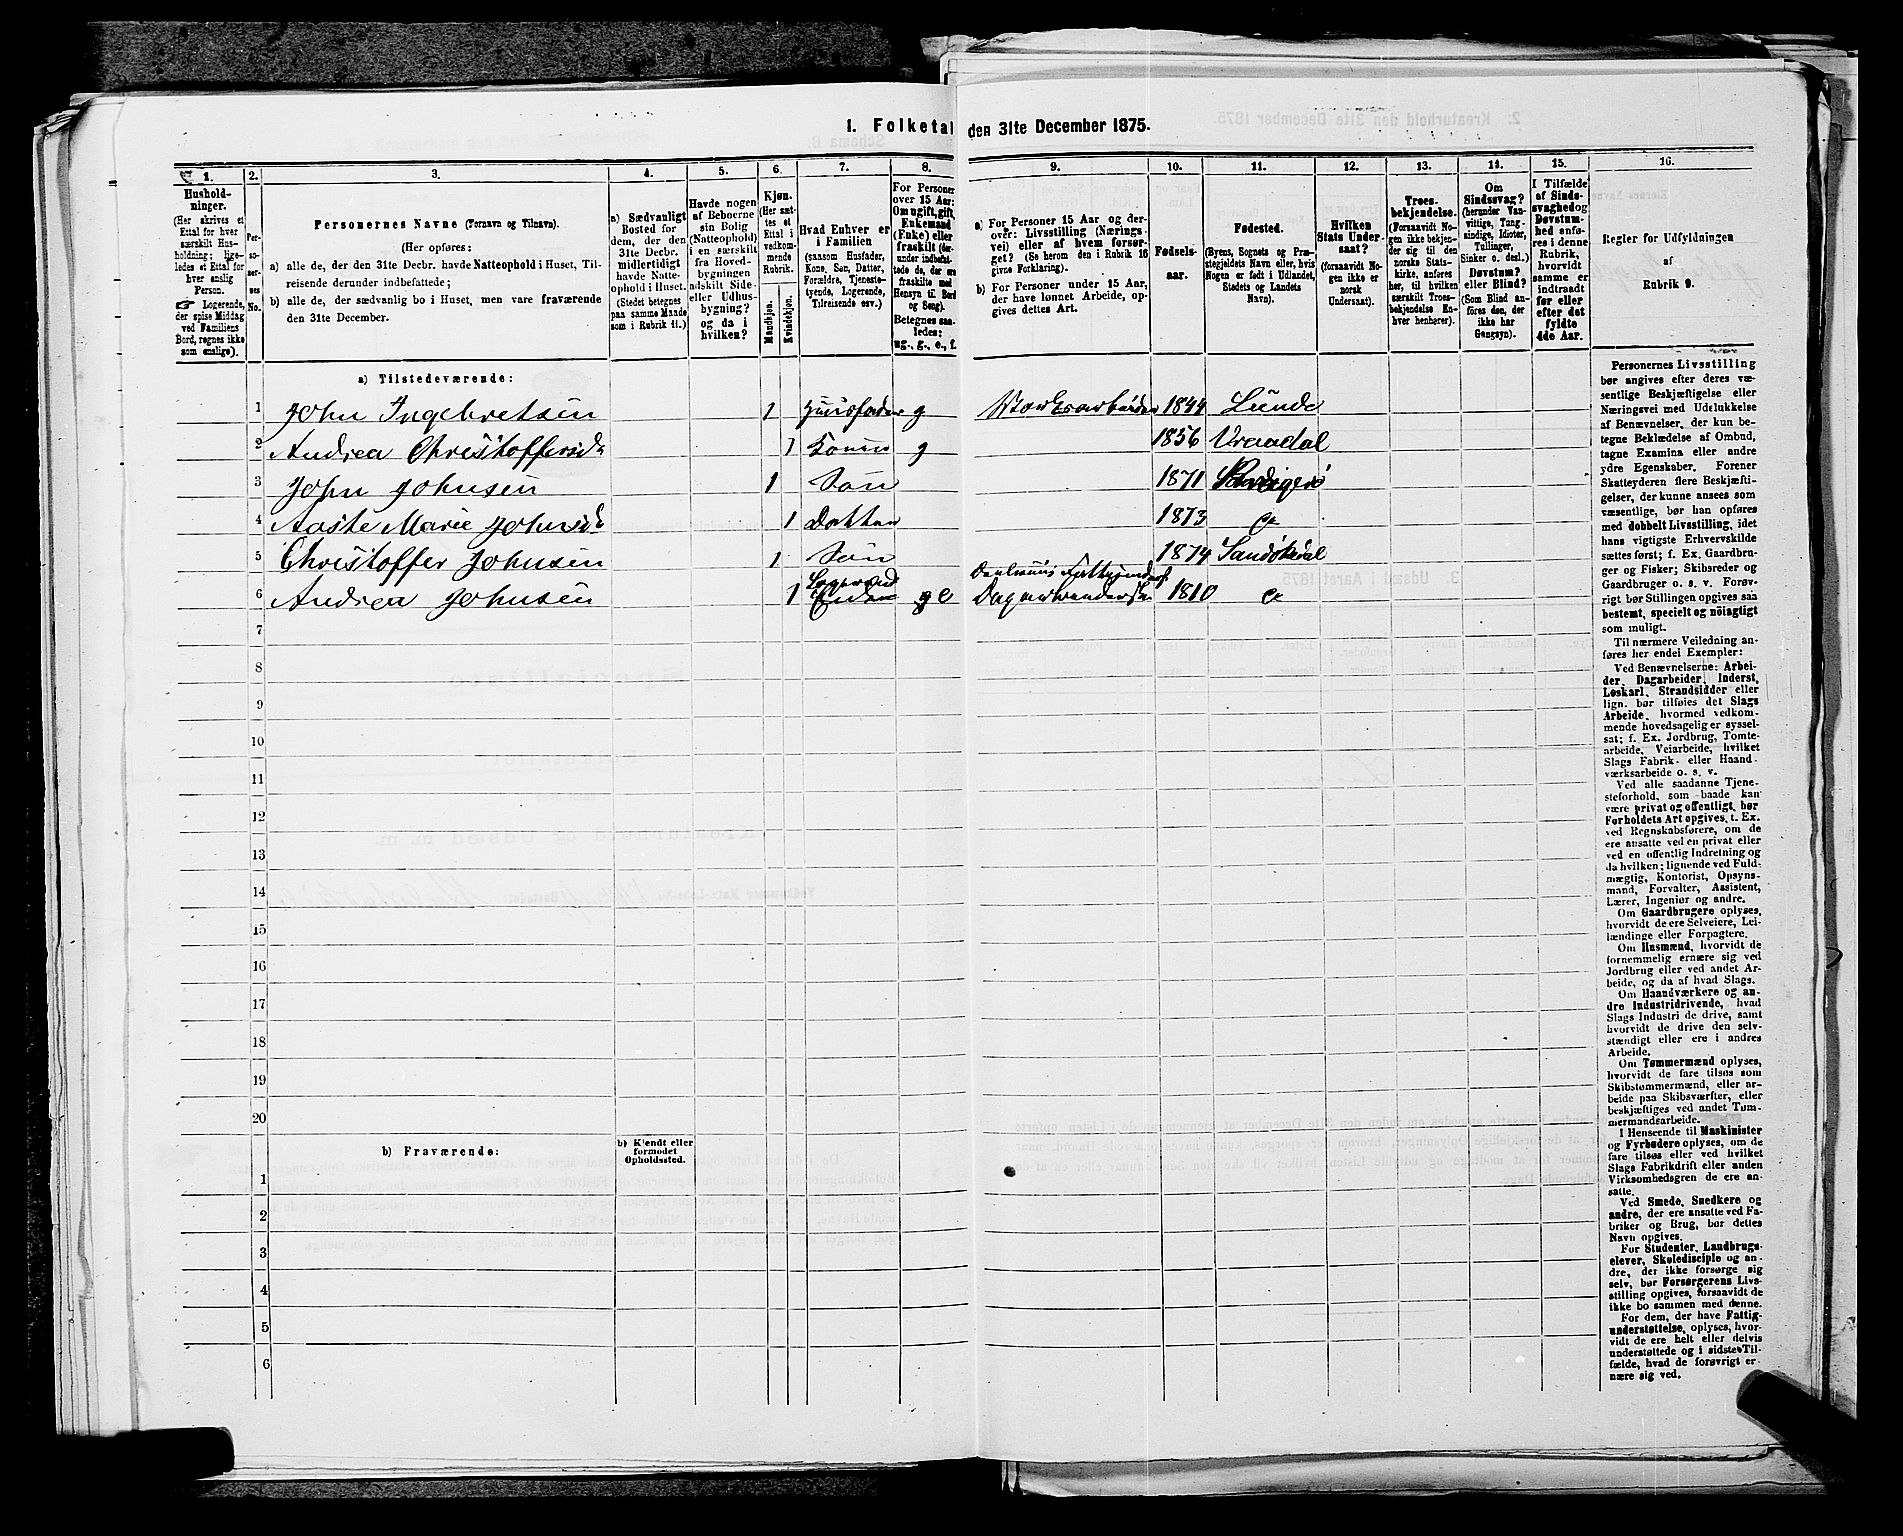 1. Folketal den 31te December 1875.
1. 2. 3. 4. 5. 6. 7. 8. 9. 10. 11. 12. 13. 14. 15. 16.
Hushold-
ninger.
(Her skrives et
Ettal for hver
særskilt Hus-
holdning; lige-
ledes et Ettal for
hver enslig
Person.
☞ Logerende,
der spise Middag
ved Familiens
Bord, regnes ikke
som enslige).
Per-
so-
ner-
nes
No.
Personernes Navne (Fornavn og Tilnavn).
(Her opføres:
a) alle de, der den 31te Decbr. havde Natteophold i Huset, Til-
reisende derunder indbefattede;
b) alle de, der sædvanlig bo i Huset, men vare fraværende
den 31te December.
a) Sædvanligt
Bosted for
dem, der den
31te Decbr.
midlertidigt
havde Natte-
ophold i Huset.
(Stedet betegnes
paa samme Maade
som i Rubrik 11.)
Havde nogen
af Beboerne
sin Bolig
(Natteophold)
i en særskilt
fra Hoved-
bygningen
adskilt Side-
eller Udhus-
bygning?
og da i
hvilken?
Kjøn.
(Her sæt-
tes et
Ettal i
vedkom-
mende
Rubrik.
Mandkjøn.
Kvindekjøn.
Hvad Enhver er
i Familien
(saasom Husfader,
Kone, Søn, Datter,
Forældre, Tjeneste-
tyende, Logerende,
Tilreisende osv.)
For Personer
over 15 Aar:
Om ugift, gift,
Enkemand
(Enke) eller
fraskilt (der-
under indbefat-
tede de, der ere
fraskilte med
Hensyn til Bord
og Seng).
Betegnes saa-
ledes:
ug., g., e., f.
a) For Personer 15 Aar og der-
over: Livsstilling (Nærings-
vei) eller af hvem forsør-
get? (Se herom den i Rubrik 16
givne Forklaring).
b) For Personer under 15 Aar,
der have lønnet Arbeide, op-
gives dettes Art.
Fødsels-
aar.
Fødested.
(Byens, Sognets og Præ-
stegjeldets Navn eller, hvis
Nogen er født i Udlandet,
Stedets og Landets
Navn).
Hvilken
Stats Under-
saat?
(forsaavidt No-
gen ikke er
norsk
Undersaat).
Troes-
bekjendelse.
(Forsaavidt No-
gen ikke bekjen-
der sig til den
norske Stats-
kirke, anføres
her, til hvilken
særskilt Troes-
bekjendelse En-
hver henhører).
Om
Sindssvag?
(herunder Van-
vittige, Tung-
sindige, Idioter,
Tullinger,
Sinker o. desl.)
Døvstum?
eller Blind?
(Som Blind an-
føres den, der
ikke har
Gangsyn).
I Tilfælde
af Sinds-
svaghed og
Døvstum-
hed anfø-
res i denne
Rubrik,
hvorvidt
samme er
indtraadt
før eller
efter det
fyldte
4de Aar.
Regler for Udfyldningen
af
Rubrik 9.
a) Tilstedeværende:
1 John Ingebretsen 1 Huusfader g 1844 Lunde
2 Andrea 1 Kone g 1856 Vraadal
3 John Johnsen 1 Søn 1871
4 Aaste Marie 1 Datter 1873
5 Christoffer Johnsen 1 Søn 1874
6 Andrea Johnsen 1 e 1810
7
8
9
10
11
12
13
14
15
16
17
18
19
20
b) Fraværende: b) Kjendt eller
formodet
Opholdssted.
1
2
3
4
5
6
Personernes Livsstilling
bør angives efter deres væ-
sentlige Beskjæftigelse eller
Næringsvei med Udelukkelse
af Benævnelser, der kun be-
tegne Beklædelse af Ombud,
tagne Examina eller andre
ydre Egenskaber. Forener
Skatteyderen flere Beskjæfti-
gelser, der kunne ansees som
væsentlige, bør han opføres
med dobbelt Livsstilling, idet
hans vigtigste Erhvervskilde
sættes først; f. Ex. Gaardbru-
ger og Fisker; Skibsreder og
Gaardbruger o. s. v. Forøv-
rigt bør Stillingen opgives saa
bestemt, specielt og nøiagtigt
som muligt.
Til nærmere Veiledning an-
føres her endel Exempler:
Ved Benævnelserne: Arbei-
der, Dagarbeider, Inderst,
Løskarl, Strandsidder eller
lign. bør tilføies det Slags
Arbeide, hvormed vedkom-
mende hovedsagelig er syssel-
sat; f. Ex. Jordbrug, Tomte-
arbeide, Veiarbeide, hvilket
Slags Fabrik- eller Haand-
værksarbeide o. s. v.
Ved alle saadanne Tjene-
steforhold, som baade kan
være privat og offentligt, bør
Forholdets Art opgives, t. Ex.
ved Regnskabsførere, om de
ere ansatte ved en privat eller
ved en offentlig Indretning og
da hvilken; lignende ved Fuld-
mægtig, Kontorist, Opsyns-
mand, Forvalter, Assistent,
Lærer, Ingeniør og andre.
Om Gaardbrugere oplyses,
hvorvidt de ere Selveiere, Lei-
lændinge eller Forpagtere.
Om Husmænd, hvorvidt de
fornemmelig ernære sig ved
Jordbrug eller ved andet Ar-
beide, og da af hvad Slags.
Om Haandværkere og an-
dre Industridrivende, hvad
Slags Industri de drive, samt
hvorvidt de drive den selv-
stændigt eller ere i andres
Arbeide.
Om Tømmermænd oplyses,
hvorvidt de fare tilsøs som
Skibstømmermænd, eller ar-
beide paa Skibsværfter, eller
beskjæftiges ved andet Tøm-
mermandsarbeide.
I Henseende til Maskinister
og Fyrbødere oplyses, om de
fare tilsøs eller ved hvilket
Slags Fabrikdrift eller anden
Virksomhedsgren de ere an-
satte.
Ved Smede, Snedkere og
andre, der ere ansatte ved Fa-
briker og Brug, bør dettes
Navn opgives.
For Studenter, Landbrugs-
elever, Skoledisciple og an-
dre, der ikke forsørge sig
selv, bør Forsørgerens Livs-
stilling opgives, forsaavidt de
ikke bo sammen med denne.
For dem, der have Fattig-
understøttelse, oplyses, hvor-
vidt de ere helt eller delvis
understøttede og i sidste Til-
fælde, hvad de forøvrigt er-
nære sig ved.